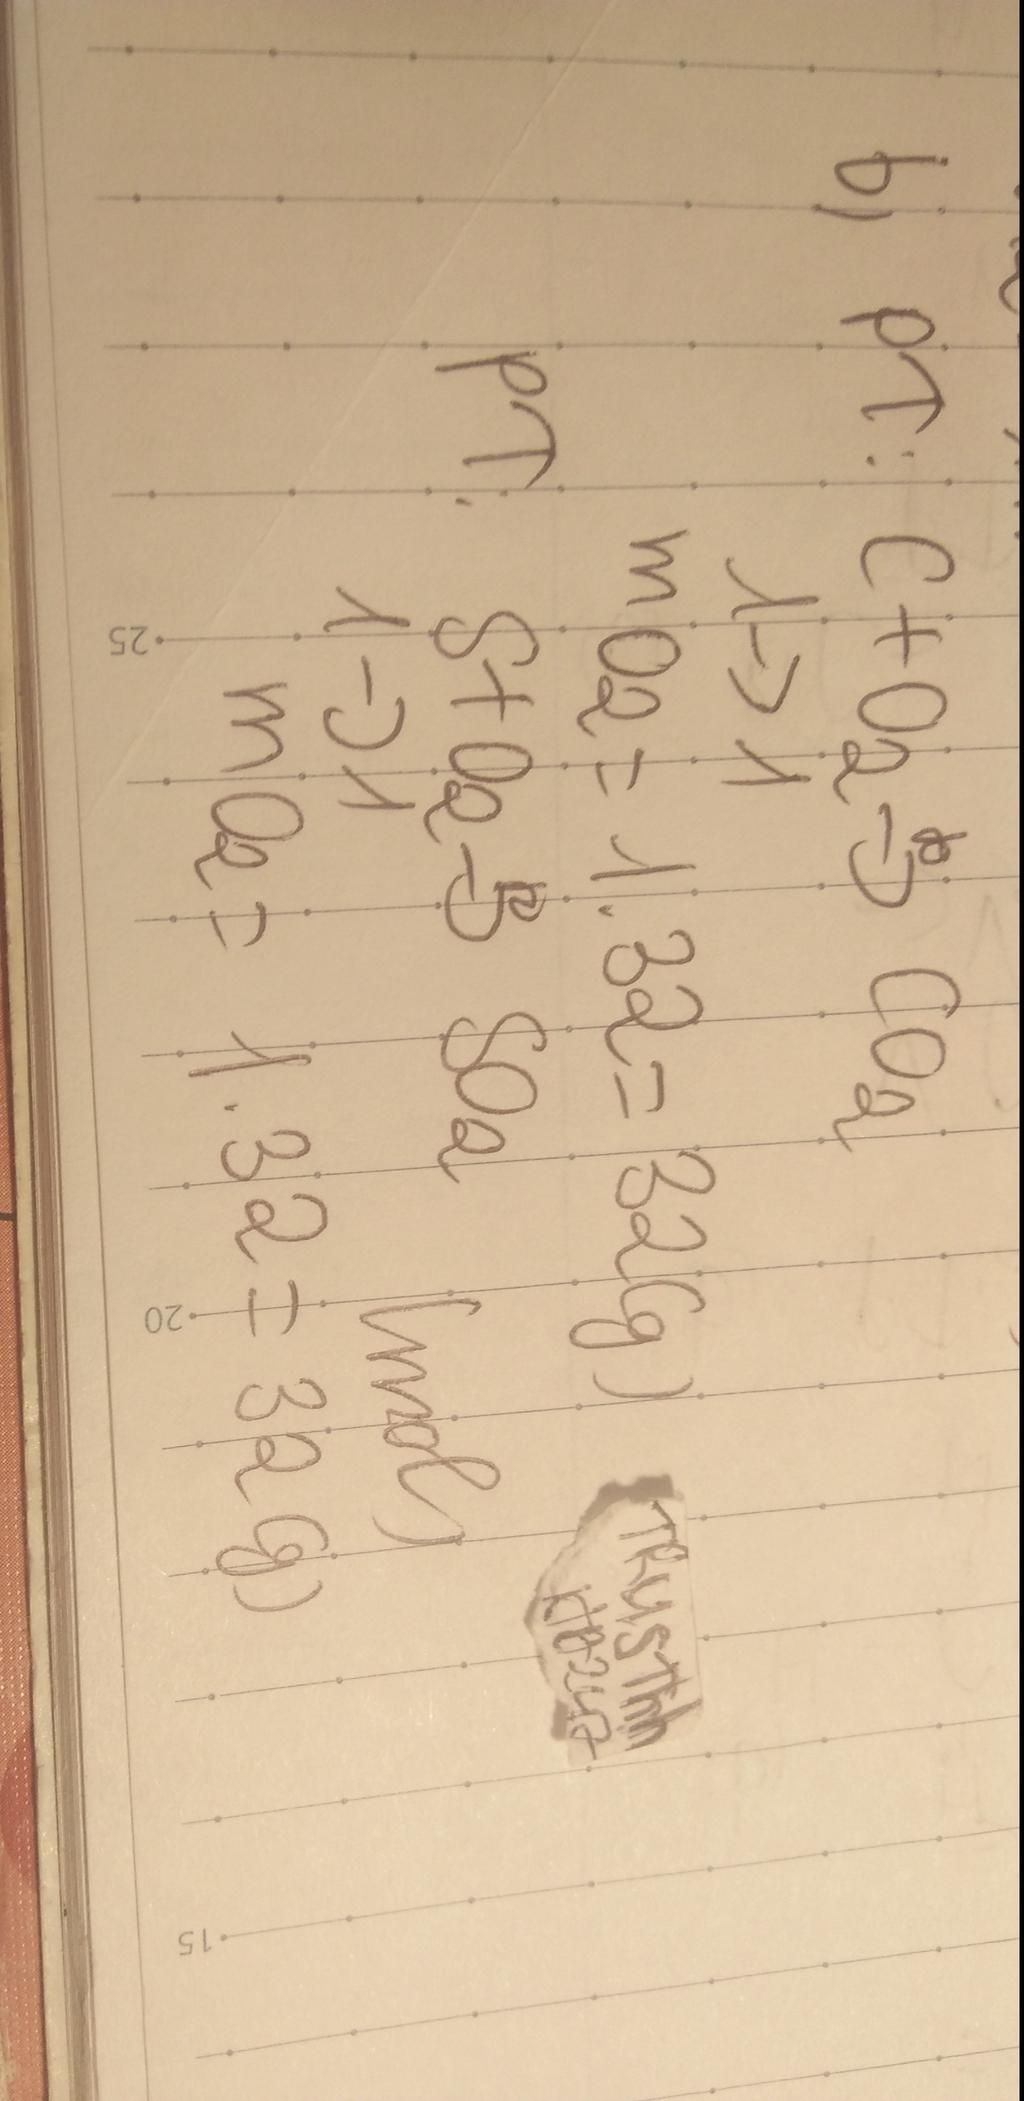 b) PT: C + O2 -> CO2
1 -> 1
mO2 = 1.32 = 32(g)
PT: S + O2 -> SO2
1 -> 1 (mol)
mO2 = 1.32 = 32(g)
TRUSThh
25
20
15